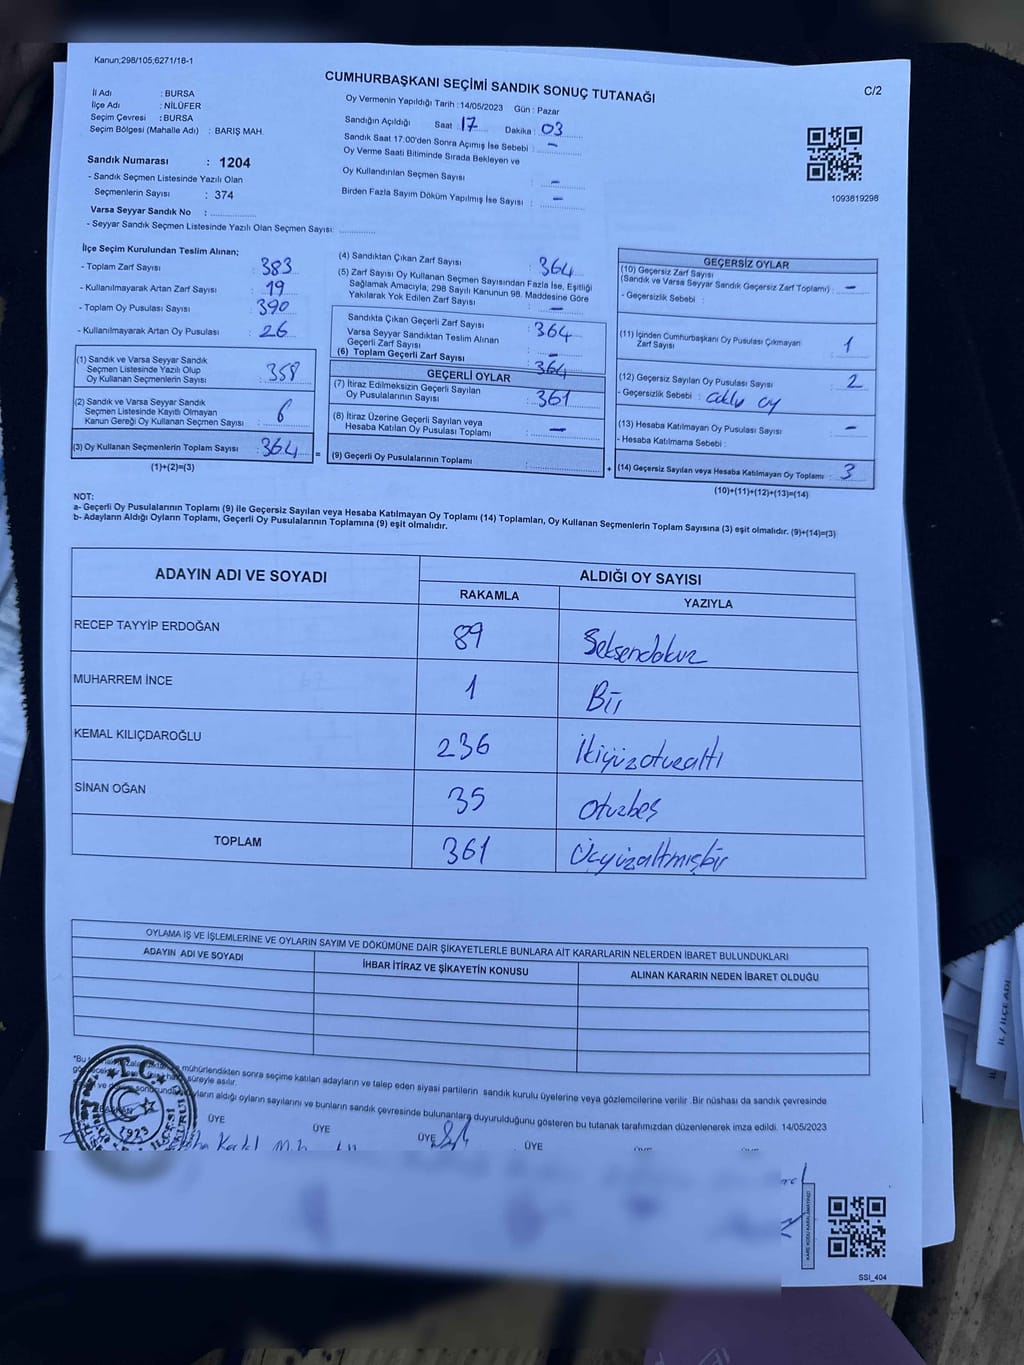 Kanun;298/105;6271/18-1
CUMHURBAŞKANI SEÇİMİ SANDIK SONUÇ TUTANAĞI
C/2
İl Adı : BURSA
İlçe Adı : NİLÜFER
Seçim Çevresi : BURSA
Seçim Bölgesi (Mahalle Adı) : BARIŞ MAH.
Sandık Numarası : 1204
- Sandık Seçmen Listesinde Yazılı Olan
Seçmenlerin Sayısı : 374
Varsa Seyyar Sandık No :
- Seyyar Sandık Seçmen Listesinde Yazılı Olan Seçmen Sayısı:
Oy Vermenin Yapıldığı Tarih :14/05/2023 Gün : Pazar
Sandığın Açıldığı Saat : 17 Dakika : 03
Sandık Saat 17:00'den Sonra Açmış İse Sebebi : -
Oy Verme Saati Bitiminde Sırada Bekleyen ve
Oy Kullandırılan Seçmen Sayısı : -
Birden Fazla Sayım Döküm Yapılmış İse Sayısı : -
1093819298
İlçe Seçim Kurulundan Teslim Alınan;
- Toplam Zarf Sayısı : 383
- Kullanılmayarak Artan Zarf Sayısı : 19
- Toplam Oy Pusulası Sayısı : 390
- Kullanılmayarak Artan Oy Pusulası : 26
(1) Sandık ve Varsa Seyyar Sandık
Seçmen Listesinde Yazılı Olup
Oy Kullanan Seçmenlerin Sayısı : 358
(2) Sandık ve Varsa Seyyar Sandık
Seçmen Listesinde Kayıtlı Olmayan
Kanun Gereği Oy Kullanan Seçmen Sayısı : 6
(3) Oy Kullanan Seçmenlerin Toplam Sayısı : 364 =
(1)+(2)=(3)
(4) Sandıktan Çıkan Zarf Sayısı : 364
(5) Zarf Sayısı Oy Kullanan Seçmen Sayısından Fazla İse, Eşitliği
Sağlamak Amacıyla, 298 Sayılı Kanunun 98. Maddesine Göre
Yakılarak Yok Edilen Zarf Sayısı : -
Sandıkta Çıkan Geçerli Zarf Sayısı : 364
Varsa Seyyar Sandıktan Teslim Alınan
Geçerli Zarf Sayısı : -
(6) Toplam Geçerli Zarf Sayısı : 364
GEÇERLİ OYLAR
(7) İtiraz Edilmeksizin Geçerli Sayılan
Oy Pusulalarının Sayısı : 361
(8) İtiraz Üzerine Geçerli Sayılan veya
Hesaba Katılan Oy Pusulası Toplamı : -
(9) Geçerli Oy Pusulalarının Toplamı : +
GEÇERSİZ OYLAR
(10) Geçersiz Zarf Sayısı
(Sandık ve Varsa Seyyar Sandık Geçersiz Zarf Toplamı) : -
- Geçersizlik Sebebi :
(11) İçinden Cumhurbaşkanı Oy Pusulası Çıkmayan
Zarf Sayısı : 1
(12) Geçersiz Sayılan Oy Pusulası Sayısı : 2
- Geçersizlik Sebebi : oy
(13) Hesaba Katılmayan Oy Pusulası Sayısı : -
- Hesaba Katılmama Sebebi :
(14) Geçersiz Sayılan veya Hesaba Katılmayan Oy Toplamı : 3
(10)+(11)+(12)+(13)=(14)
NOT:
a- Geçerli Oy Pusulalarının Toplamı (9) ile Geçersiz Sayılan veya Hesaba Katılmayan Oy Toplamı (14) Toplamları, Oy Kullanan Seçmenlerin Toplam Sayısına (3) eşit olmalıdır. (9)+(14)=(3)
b- Adayların Aldığı Oyların Toplamı, Geçerli Oy Pusulalarının Toplamına (9) eşit olmalıdır.
ADAYIN ADI VE SOYADI
ALDIĞI OY SAYISI
RAKAMLA YAZIYLA
RECEP TAYYİP ERDOĞAN 89 Seksendokuz
MUHARREM İNCE 1 Bir
KEMAL KILIÇDAROĞLU 236 İkiyüzotuzaltı
SİNAN OĞAN 35 Otuzbeş
TOPLAM 361 Üçyüzaltmışbir
OYLAMA İŞ VE İŞLEMLERİNE VE OYLARIN SAYIM VE DÖKÜMÜNE DAİR ŞİKAYETLERLE BUNLARA AİT KARARLARIN NELERDEN İBARET BULUNDUKLARI
ADAYIN ADI VE SOYADI İHBAR İTİRAZ VE ŞİKAYETİN KONUSU ALINAN KARARIN NEDEN İBARET OLDUĞU
*Bu mühürlendikten sonra seçime katılan adayların ve talep eden siyasi partilerin sandık kurulu üyelerine veya gözlemcilerine verilir .Bir nüshası da sandık çevresinde
süreyle asılır.
aldığı oyların sayılarını ve bunların sandık çevresinde bulunanlara duyurulduğunu gösteren bu tutanak tarafımızdan düzenlenerek imza edildi. 14/05/2023
ÜYE ÜYE ÜYE ÜYE
T.C.
1923
SSI_404
İL / İLÇE ADI